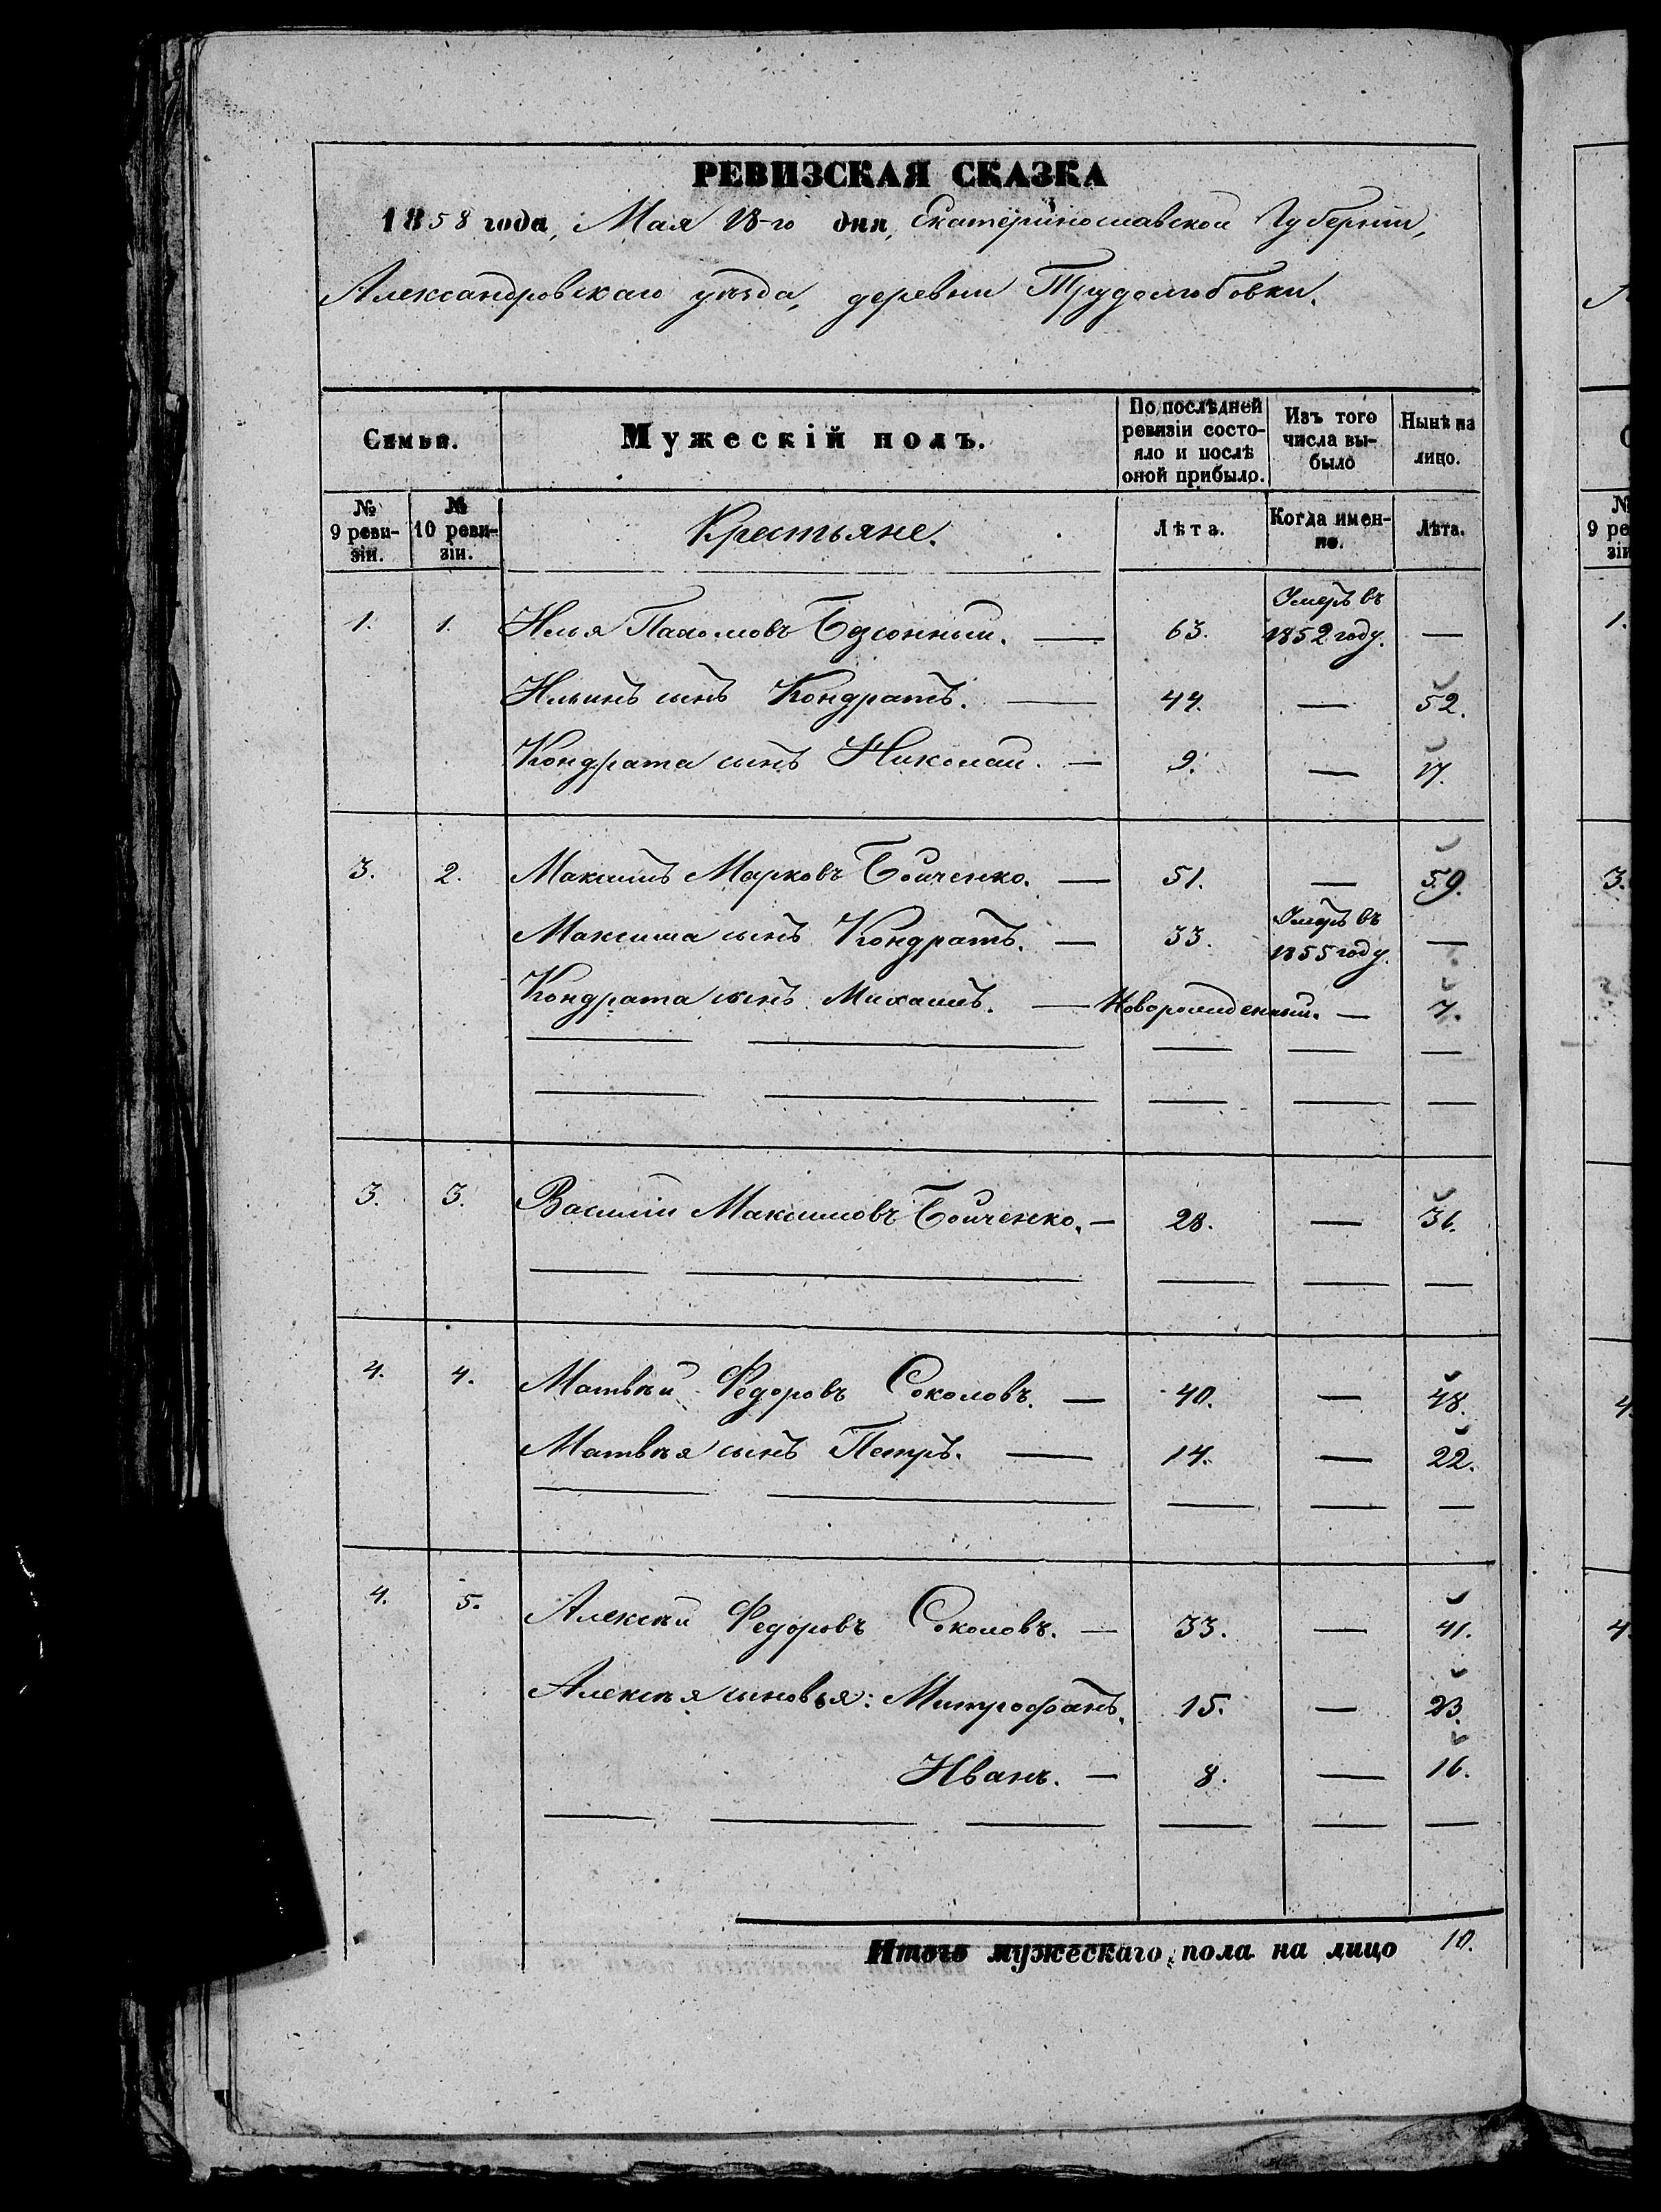 РЕВИЗСКАЯ СКАЗКА
1858 года, Мая 18-го дня, Екатеринославской Губернии,
Александровскаго уѣзда, деревни Трудолюбовки.
Семьи. Мужескій полъ. По послѣдней ревизіи состояло и послѣ оной прибыло. Изъ того числа выбыло Нынѣ на лицо.
№ 9 ревизіи. № 10 ревизіи. Крестьяне. Лѣта. Когда именно. Лѣта.
1. 1. Илья Пахомовъ 63. Умеръ въ 1852 году. —
Ильинъ сынъ Кондратъ. — 44. — 52.
Кондрата сынъ Николай. — 9. — 17.
3. 2. Максимъ Марковъ Бойченко. — 51. — 59.
Максима сынъ Кондратъ. — 33. Умеръ въ 1855 году. —
Кондрата сынъ Михаилъ. — Новорожденный. — 7.
3. 3. Василій Максимовъ Бойченко. — 28. — 36.
4. 4. Матвѣй Федоровъ Соколовъ. — 40. — 48.
Матвѣя сынъ Петръ. — 14. — 22.
4. 5. Алексѣй Федоровъ Соколовъ. — 33. — 41.
Алексѣя сыновья: Митрофанъ. 15. — 23.
Иванъ. — 8. — 16.
Итого мужескаго пола на лицо 10.